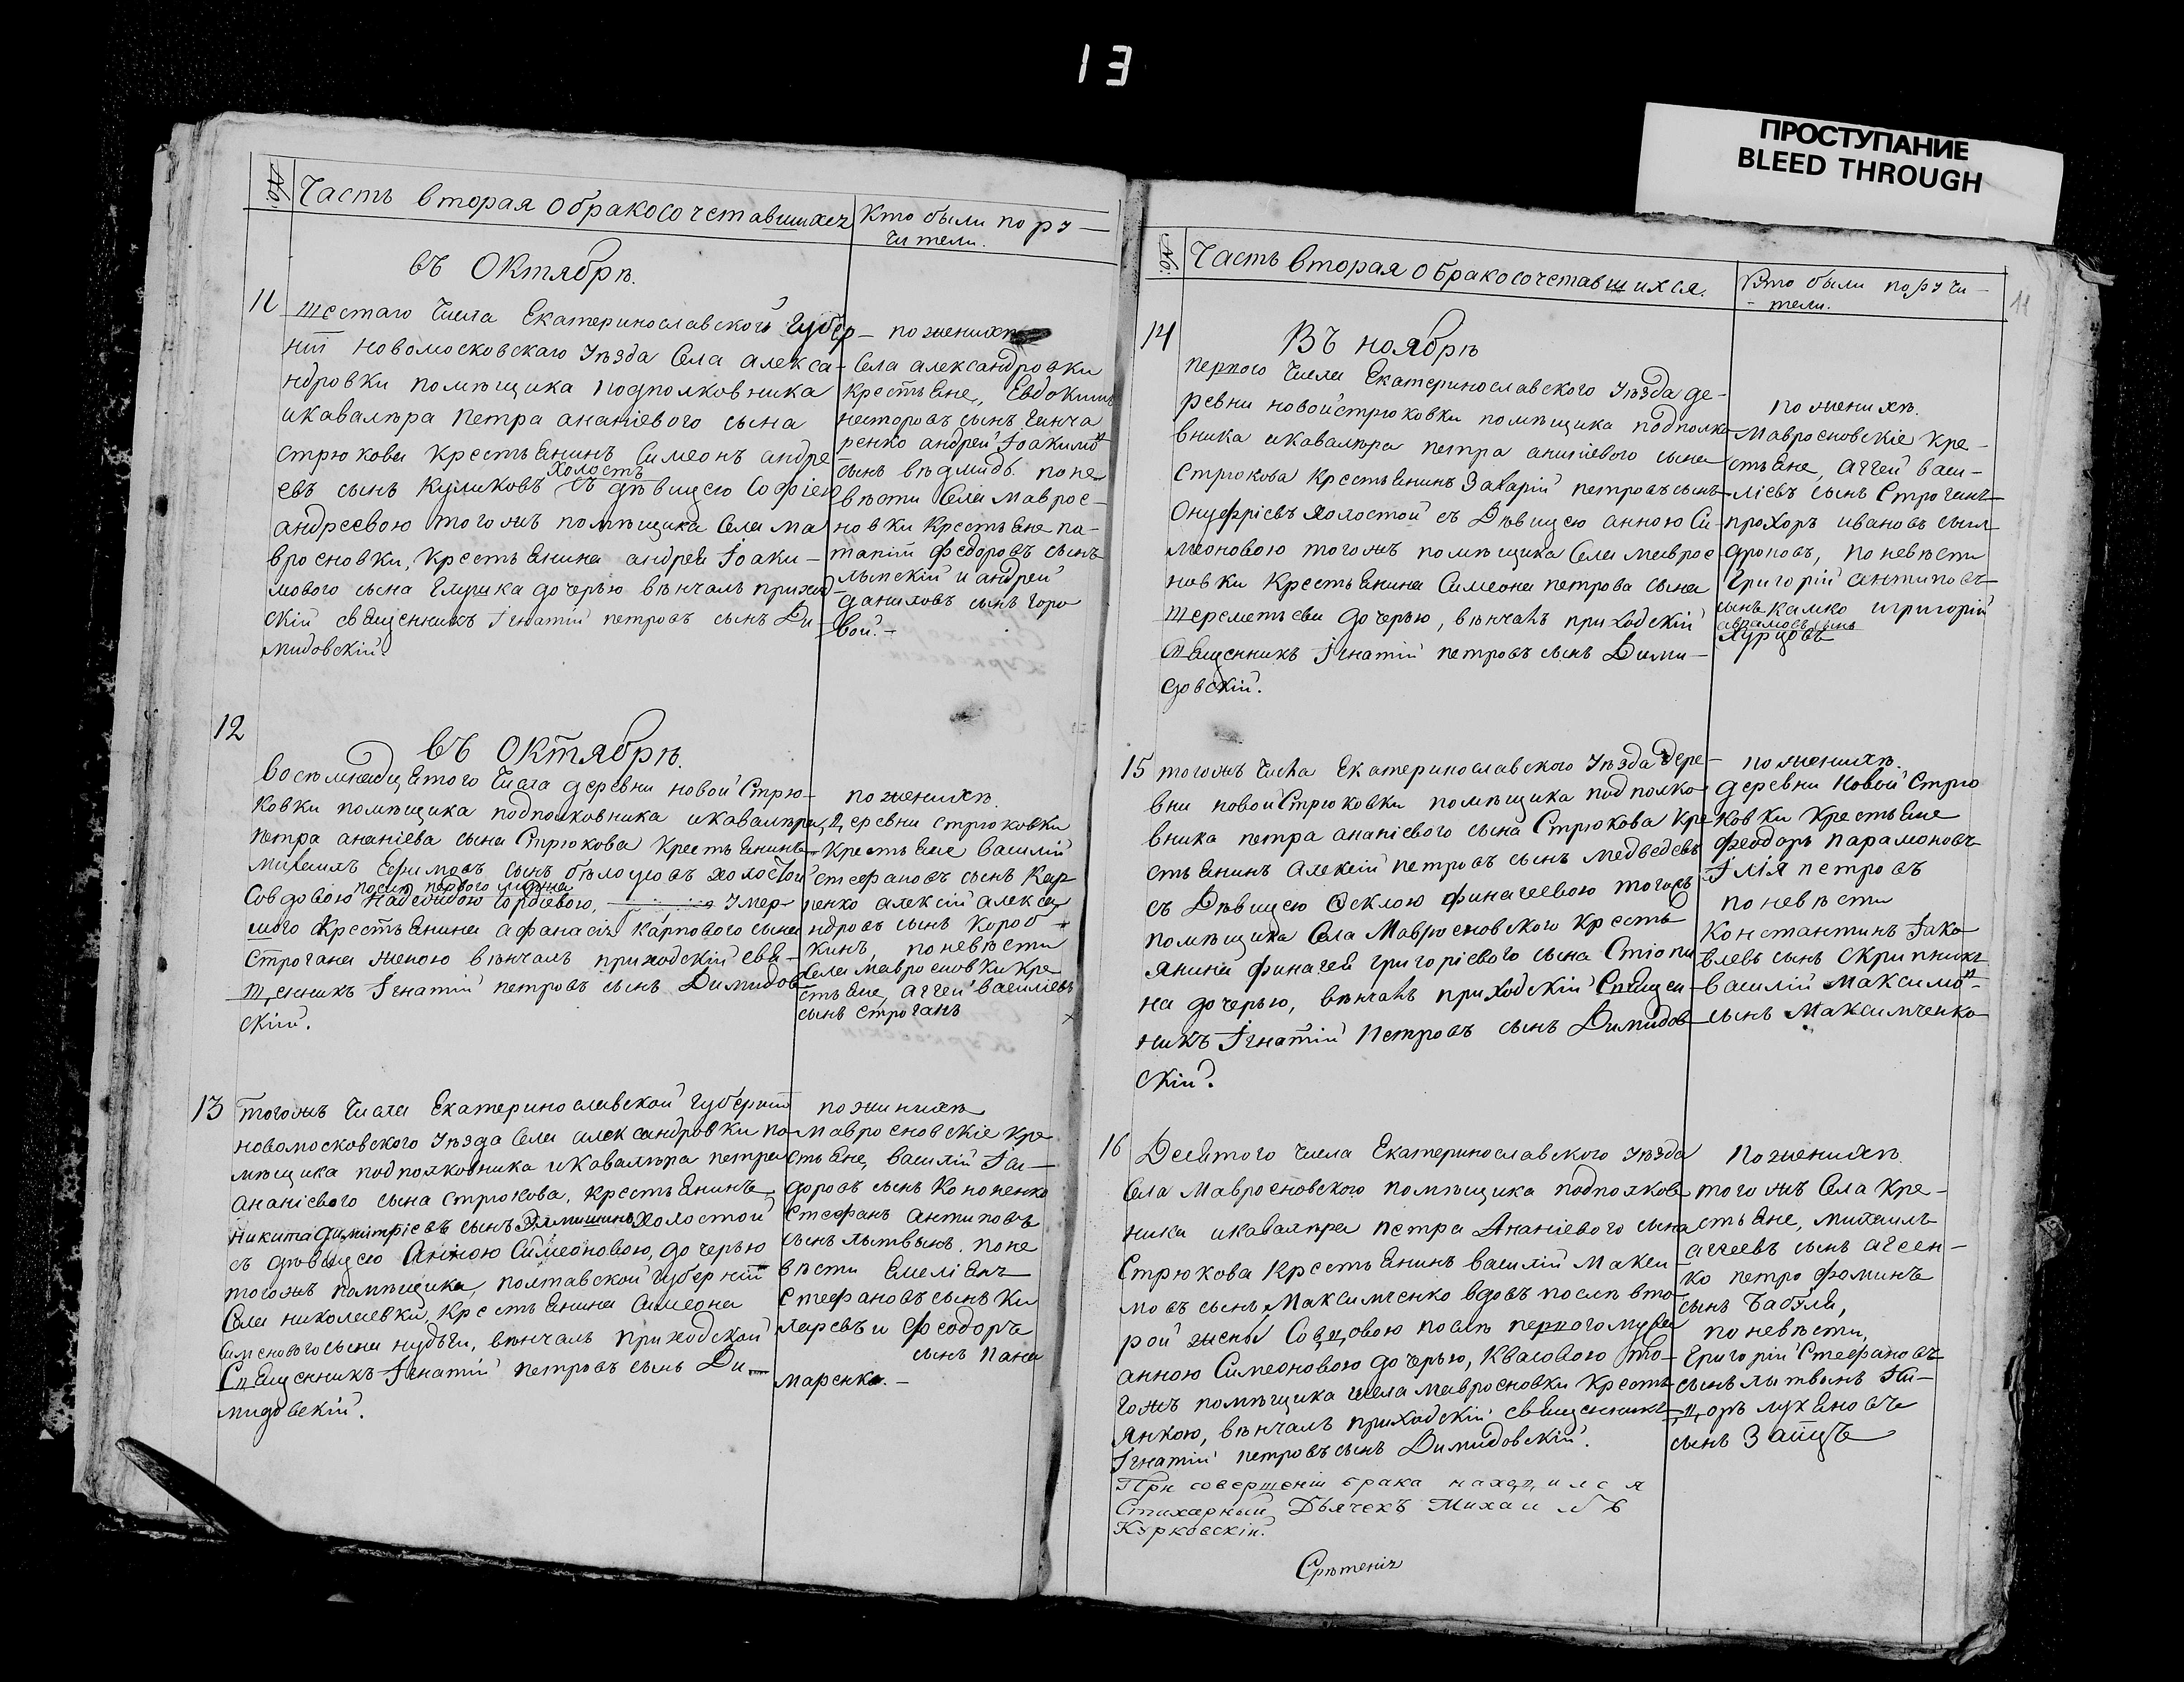 13
ПРОСТУПАНИЕ
BLEED THROUGH
№: Часть вторая обракосочетавшихся
Кто были пору-
чители.
въ Октябрѣ.
11 шестаго числа Екатеринославской губер-
нїи новомосковскаго уѣзда села алекса-
ндровки помѣщика подполковника
икавалѣра петра ананіевого сына
стрюкова крестьянинъ Симеонъ андре
евъ сынъ Куликовъ холостъ съ дѣвицею Софіею
андреевою тогожъ помѣщика села ма
вросновки, крестьянина андрея Іоаки-
мового сына дочерью вѣнчалъ приход
скій священникъ Ігнатій петровъ сынъ Ди
мидовскій.
по женихѣ
села александровки
крестьяне, Евдокимъ
несторовъ сынъ Гонча
ренко андрей Іоакимов
сынъ вѣдмидъ. поне
вѣсти села маврос-
новки крестьяне па-
тапій федоровъ сынъ
лыпскій и андрей
даниловъ сынъ горо
вой.-
12
въ Октябрѣ.
восемнадцятого числа деревни новой Стрю-
ковки помѣщика подполковника икавалѣра
петра ананіева сына Стрюкова крестьянинъ
михаилъ Ефимовъ сынъ бѣлоусовъ холостой
совдовою послѣ первого мужа Надеждою гордѣевою, умер-
шого крестьянина афанасія карпового сына
строгана женою вѣнчалъ приходскій свя-
щенникъ Ігнатій петровъ сынъ Димидов
скій.
по женихѣ.
деревни стрюковки
крестьяне василій
стефановъ сынъ Кар
пенко алексій алекса
ндровъ сынъ Короб
кинъ, поневѣсти
села мавросновки кре
стьяне, аггей василіевъ
сынъ строганъ
13 тогожъ числа Екатеринославской губернїи
новомосковского уѣзда села александровки по
мѣщика подполковника икавалѣра петра
ананіевого сына стрюкова, крестьянинъ
никита димитріевъ сынъ холостой
съ дѣвицею Анною Симеоновою, дочерью
тогожъ помѣщика, полтавской губернїи
села николаевки, крестьянина Симеона
сына нудьги, вѣнчалъ приходской
Священникъ Ігнатій петровъ сынъ Ди-
мидовскій.
по жинихѣ
мавросновскіе кре
стьяне, василій Іси-
доровъ сынъ Кононенко
стефанъ антиповъ
сынъ лытвынъ. поне
вѣсти Емеліянъ
стефановъ сынъ Ки
яревъ и феодоръ
сынъ пана
маренко.-
№: Часть вторая обракосочетавшихся.
Кто были поручи-
-тели.
11
14
Въ ноябрѣ
первого числа Екатеринославского уѣзда де-
ревни новойстрюковки помѣщика подполко
вника икавалѣра петра ананіевого сына
Стрюкова Крестьянинъ Захарій петровъ сынъ
Онуфріевъ холостой съ Дѣвицею анною Си-
меоновою тогожъ помѣщика села маврос
новки Крестьянина Симеона петрова сына
шереметьева дочерью, вѣнчалъ приходскій
священникъ Ігнатій петровъ сынъ Дими-
довскій.
по женихѣ.
мавросновскіе кре-
стьяне, аггей васи-
ліевъ сынъ Строганъ
прохоръ ивановъ сын
дроновъ, поневѣсти
григорій антиповъ
сынъ камко игригорій
аврамовъ сынъ
хурцовъ
15 тогожъ числа Екатеринославского уѣзда дере-
вни новой Стрюковки помѣщика подполко
вника петра ананіевого сына Стрюкова кре
стьянинъ алексій петровъ сынъ медведевъ
съ Дѣвицею Феклою финагеевою тогожъ
помѣщика села Мавросновского крестья
янина финагея григоріевого сына Стюпи
на дочерью, вѣнчалъ приходскій Священ
никъ Ігнатій петровъ сынъ Димидов
скій.
по женихѣ.
деревни Новой Стрю
ковки крестьяне
феодоръ парамоновъ
Ілія петровъ
по невѣсти
константинъ Іако
влевъ сынъ скрипникъ
василій Максимов-
сынъ Максимченко
16 Десятого числа Екатеринославского уѣзда
села Мавросновского помѣщика подполков
ника икавалѣра петра Ананіевого сына
Стрюкова крестьянинъ василій макси
мовъ сынъ Максимченко вдовъ послѣ вто
рой жены Совдовою послѣ первого мужа
анною Симеоновою дочерью, квасовою то-
гожъ помѣщика села мавросновки кресть
янкою, вѣнчалъ приходскій священникъ
Ігнатій петровъ сынъ Димидовскій.
При совершеніи брака находился
Стихарный Дьячекъ Михаилъ
Курковскій.
по женихѣ.
того жъ села кре-
стьяне, михаилъ
аггеевъ сынъ агеен-
ко петро фоминъ
сынъ бабуля,
по невѣсти,
григорій Стефановъ
сынъ лытвынъ Ѳи-
доръ лукяновъ
сынъ Заяцъ
Срѣтенія